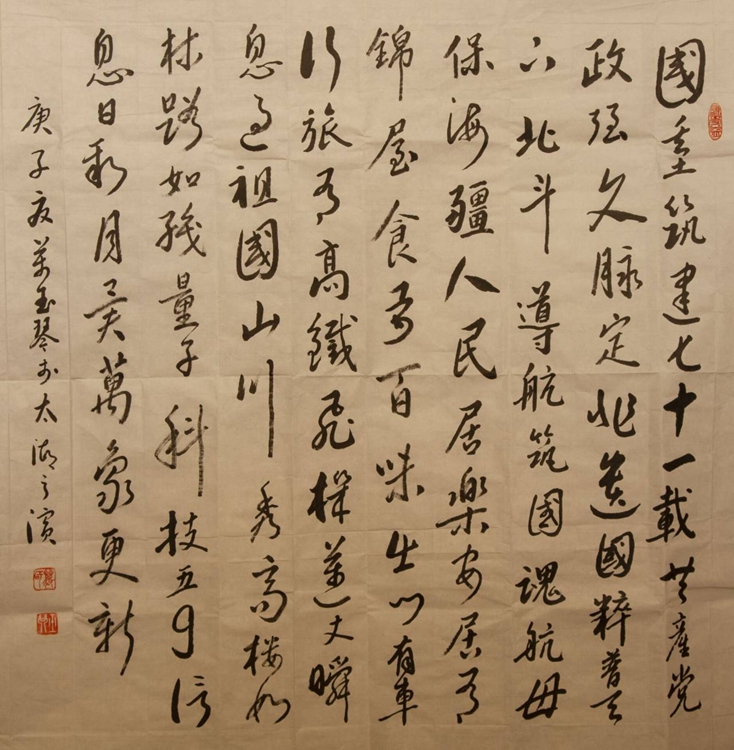 國重筑建七十一載共產党
政强久脉定非遺國粹普天
下北斗導航筑國魂航母
保海疆人民居樂安居有
錦屋食有百味出门有車
行旅有高鐵飛機丈瞬
息過祖國山川秀高楼如
林路如織量子科技五G信
息日新月異萬象更新
庚子玉琴於太湖之濱